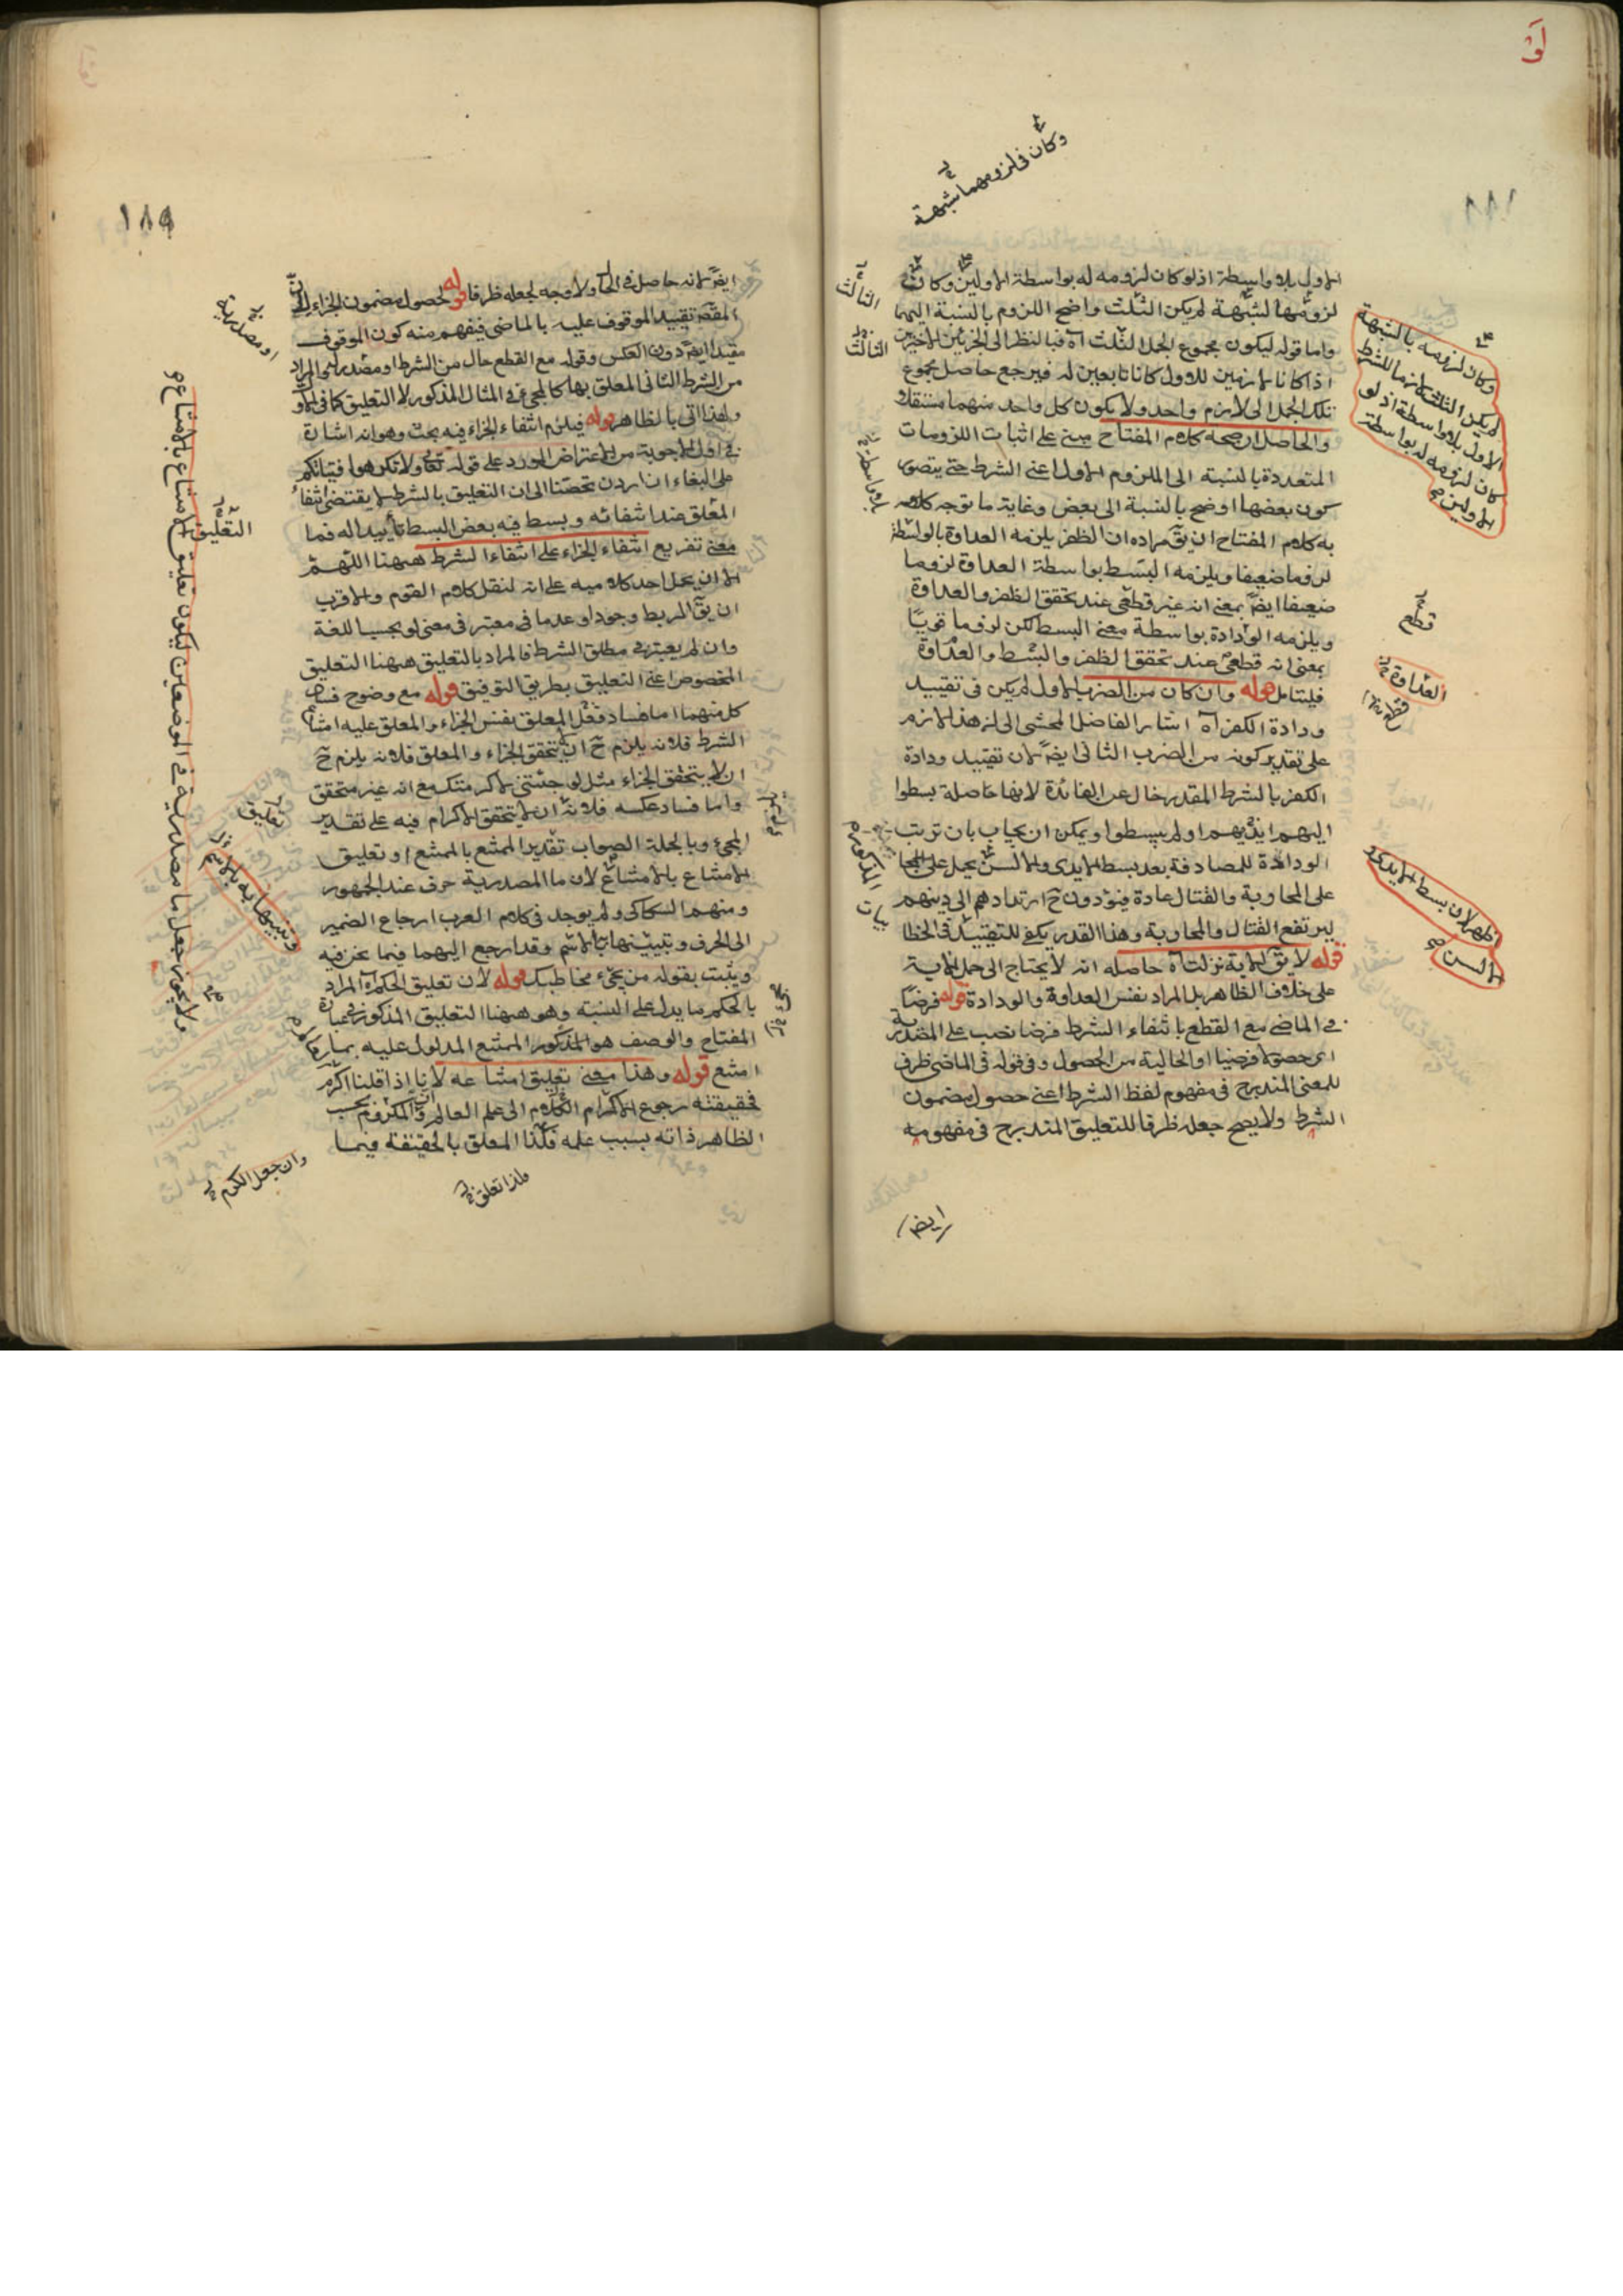 الاول بلا واسطة اذ لو كان لزومه له بواسطة الاولين وكان
لزومها لشبهة لم يكن الثلث واضح اللزوم بالنسبة اليها
واما قوله ليكون مجموع الجمل الثلث آه فبالنظر الى الجزئين الاخيرين
اذا كانا لازمين للاول كانا تابعين له فيرجع حاصل مجموع
تلك الجمل الى لازم واحد ولا يكون كل واحد منهما مستقلا
والحاصل ان صحة كلام المفتاح مبنى على اثبات اللزومات
المتعددة بالنسبة الى الملزوم الاول اعنى الشرط حتى يتصور
كون بعضها اوضح بالنسبة الى بعض وغاية ما توجه كلامه
به كلام المفتاح ان يق مراده ان الظفر يلزمه العداوة بالواسطة
لزوما ضعيفا ويلزمه البسط بواسطة العداوة لزوما
ضعيفا ايض بمعنى انه غير قطعى عند تحقق الظفر والعداوة
ويلزمه الودادة بواسطة معنى البسط لكن لزوما قويا
بمعنى انه قطعى عند تحقق الظفر والبسط والعداوة
فليتامل قوله وان كان من الضرب الاول لم يكن فى تقييد
ودادة الكفر آه اشار الفاضل المحشى الى ان هذا لازم
على تقدير كونه من الضرب الثانى ايض لان تقييد ودادة
الكفر بالشرط المقدر خال عن الفائدة لانها حاصلة بسطوا
اليهم ايديهم او لم يبسطوا ويمكن ان يجاب بان ترتب
الودادة للمصادفة بعد بسط الايدى والالسن يحمل على
على المحاربة والقتال عادة فيودون ح ارتدادهم الى دينهم
ليرتفع القتال والمحاربة وهذا القدر يكفى للتقييد فى الخطا
قوله لا يق الاية نزلت آه حاصله انه لا يحتاج الى حمل الاية
على خلاف الظاهر بل المراد نفس العداوة والودادة قوله فرضا
فى الماضى مع القطع بانتفاء الشرط فرضا نصب على المصدرية
اى حصولا فرضيا او الحالية من الحصول وفى قوله فى الماضى ظرف
للمعنى المندرج فى مفهوم لفظ الشرط اعنى حصول مضمون
الشرط ولا يصح جعله ظرفا للتعليق المندرج فى مفهومه
وكان فى لزومهما شبهة
الثالث
الثالث
وكان لزومه بالشبهة
لم يكن الثلث لازما للشرط
الاول بلا واسطة اذ لو
كان لزومه له بواسطة
الاولين
قطع
العداوة
بيان المذكور
اظهر لان بسط الايدى
والالسن
ايض
١٨٩
ايض لانه حاصل فى الحال ولا وجه لجعله ظرفا قوله لحصول مضمون الجزاء
المقصد تقييد الموقوف عليه بالماضى فيفهم منه كون الموقوف
مقيدا ايض دون العكس وقوله مع القطع حال من الشرط او مصدر
من الشرط الثانى المعلق بها كالمجئ فى المثال المذكور لا التعليق كما فى
ولهذا اتى بالظاهر قوله فيلزم انتفاء الجزاء فيه بحث وهو انه اشارة
فى اول الاجوبة من الاعتراض المورد على قوله تعالى ولا تكرهوا فتياتكم
على البغاء ان اردن تحصنا الى ان التعليق بالشرط لا يقتضى انتفاء
المعلق عند انتفائه وبسط فيه بعض البسط تأييدا له فما
معنى تفريع انتفاء الجزاء على انتفاء الشرط ههنا اللهم
الا ان يحمل احد كلاميه على انه لنقل كلام القوم والاقرب
ان يق الربط وجودا وعدما فى معتبر فى معنى لو بحسب اللغة
وان لم يعتبر فى مطلق الشرط فالمراد بالتعليق ههنا التعليق
المخصوص اعنى التعليق بطريق التوفيق قوله مع وضوح فساد
كل منهما اما فساد فعل المعلق بنفس الجزاء والمعلق عليه امتناع
الشرط فلانه يلزم ح ان يتحقق الجزاء والمعلق فلانه يلزم ح
ان لا يتحقق الجزاء مثل لو جئتنى لاكرمتك مع انه غير متحقق
واما فساد عكسه فلانه ان لا يتحقق الاكرام فيه على تقدير
المجئ وبالجملة الصواب تقدير الممتنع بالممتنع او تعليق
الامتناع بالامتناع لان ما المصدرية حرف عند الجمهور
ومنهم السكاكى ولم يوجد فى كلام العرب ارجاع الضمير
الى الحرف وتبيينها بالاسم وقد ارجع اليهما فيما نحن فيه
ويثبت بقوله من مجئ مخاطبك قوله لان تعليق الحكم آه المراد
بالحكم ما يدل على النسبة وهو ههنا التعليق المذكور فى عبارة
المفتاح والوصف هو المذكور الممتنع المدلول عليه بما
امتنع قوله وهذا معنى تعليق امتناعه لانا اذا قلنا اكرم
فحقيقته رجوع الاكرام الكلام الى علم العالم والمكروم بحسب
الظاهر ذاته بسبب علمه فكذا المعلق بالحقيقة فيما
او مصدرية
التعليق
ولا يجوز جعل ما مصدرية فى الموضعين ليكون تعليق امتناع بامتناع
تعليق
وتبيينها به بالاسم
وان جعل الكرم
ولذا تعلق